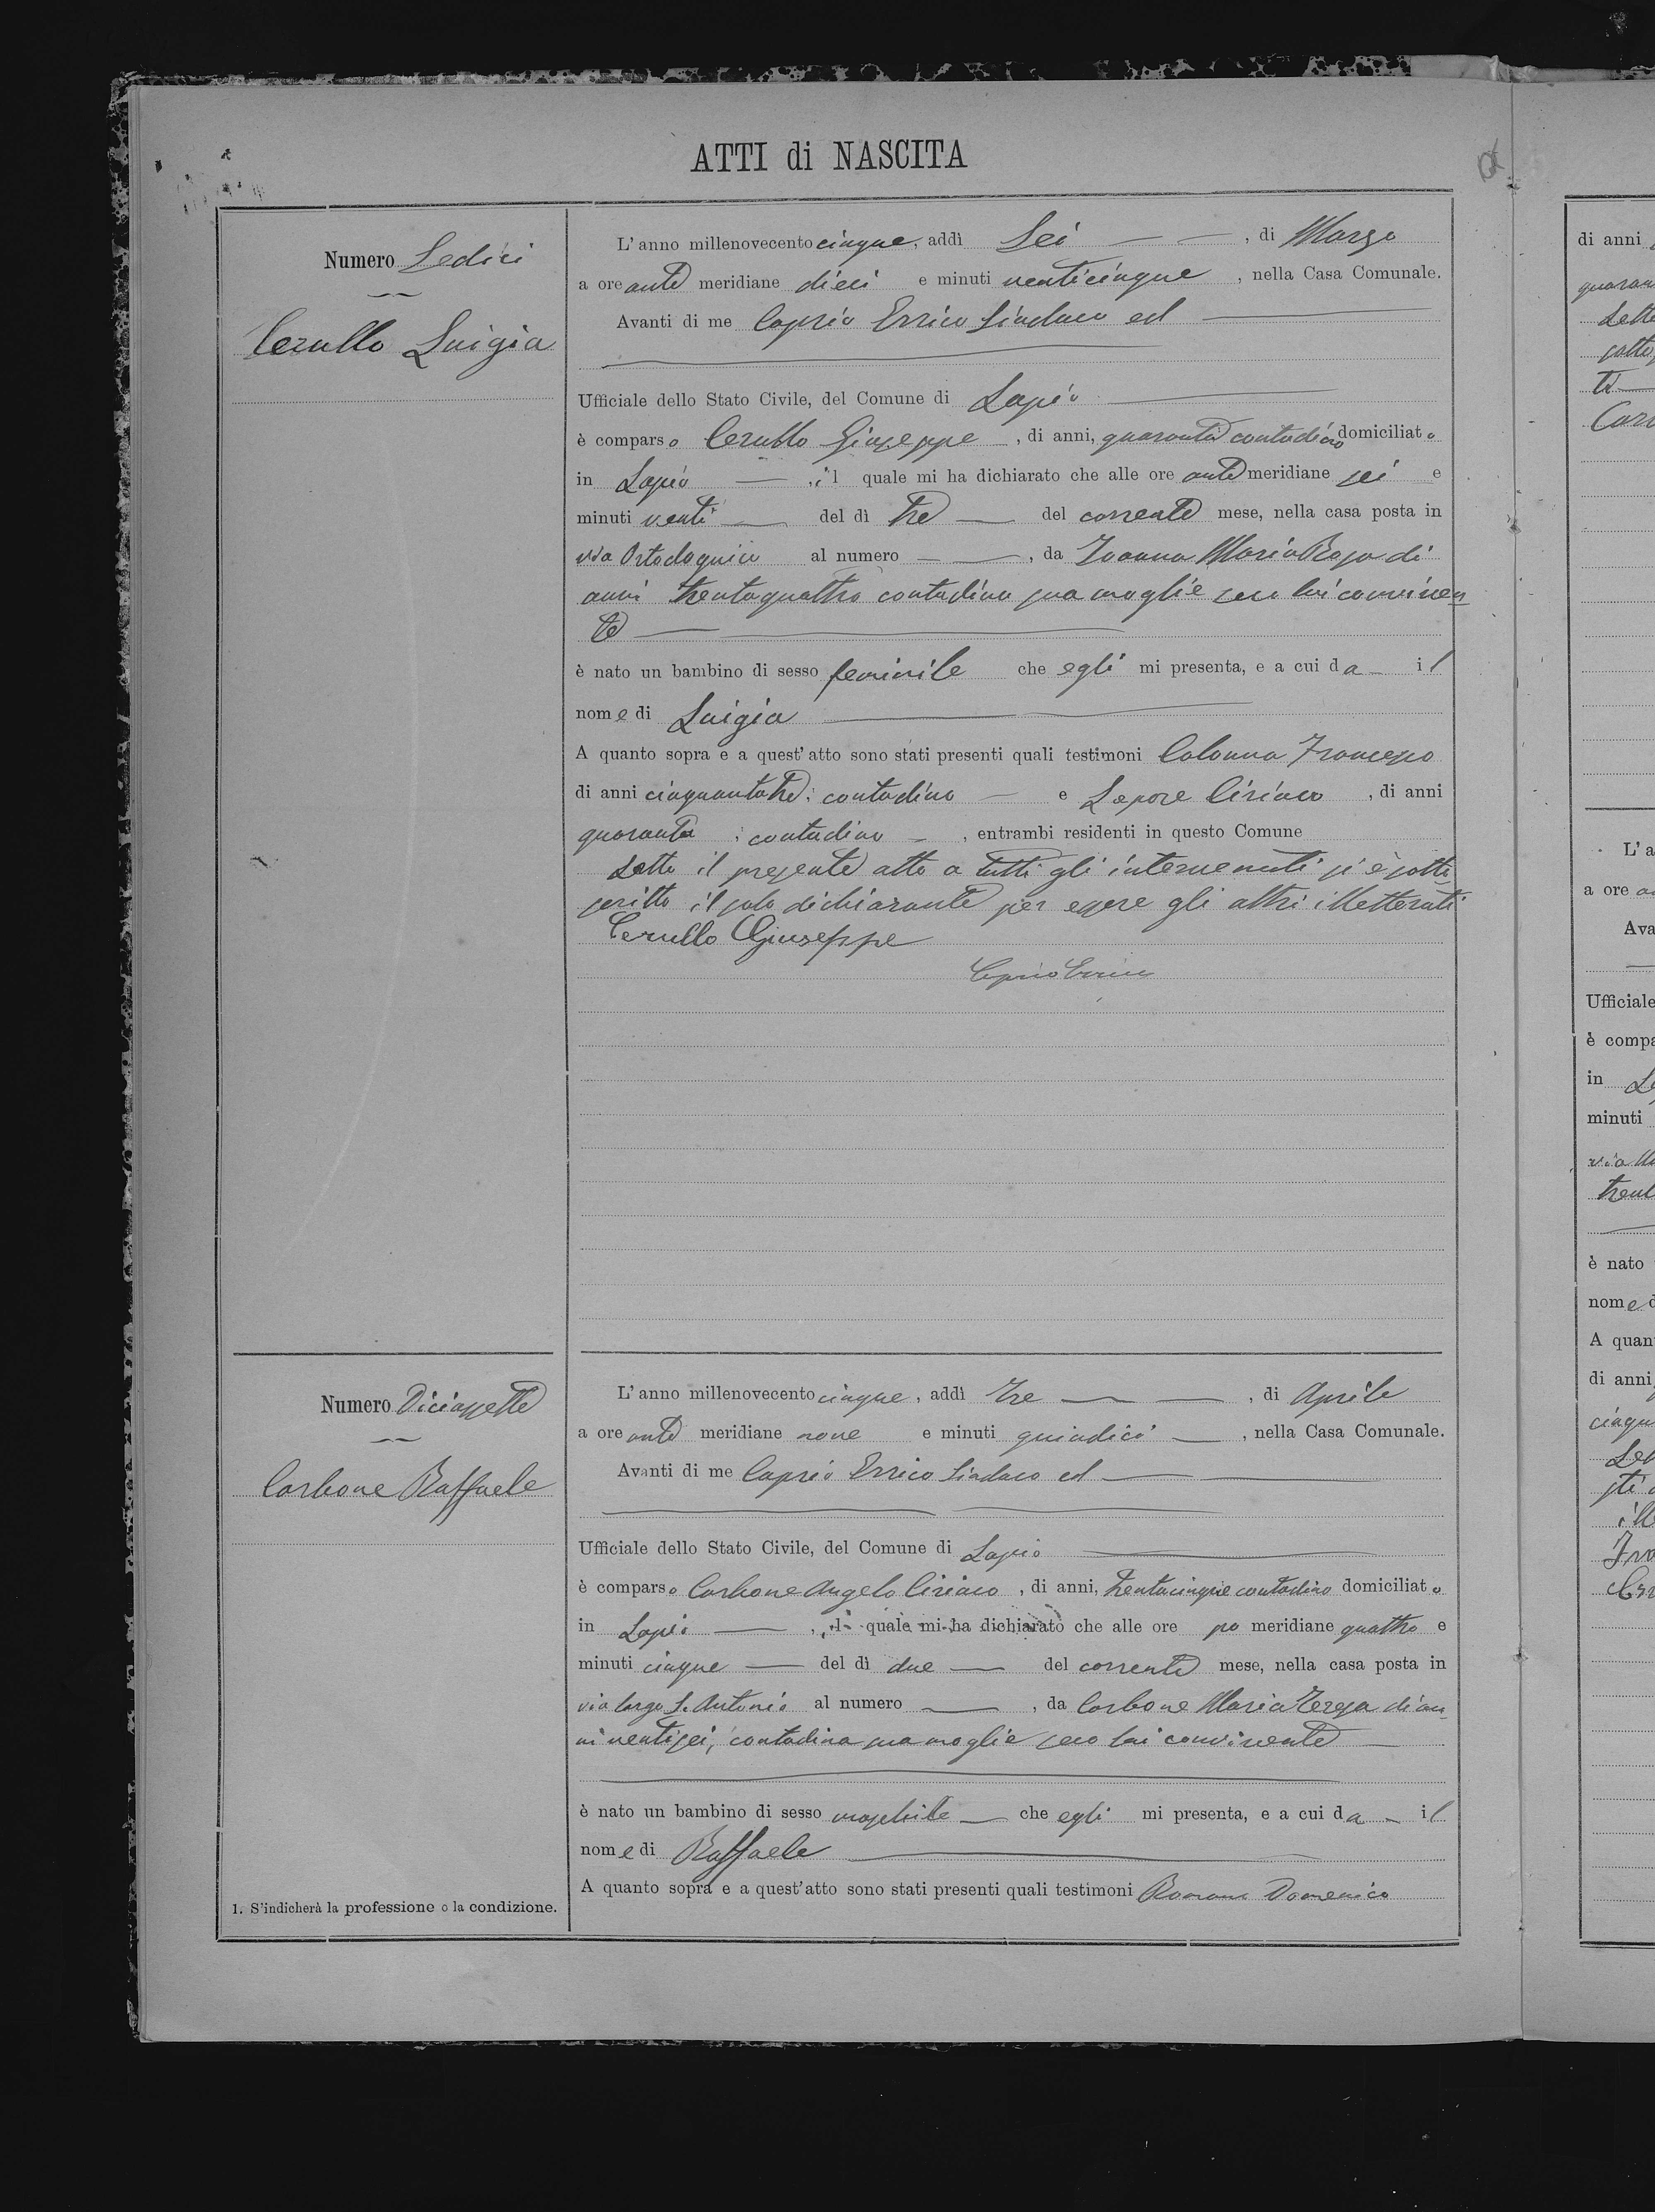 ATTI di NASCITA
Numero Sedici
Cerullo Luigia
L'anno millenovecento cinque, addì Sei, di Marzo
a ore ante meridiane dieci e minuti venticinque, nella Casa Comunale.
Avanti di me Caprio Errico Sindaco ed
Ufficiale dello Stato Civile, del Comune di Lapio
è comparso Cerullo Giuseppe, di anni, quaranta contadino domiciliato
in Lapio, il quale mi ha dichiarato che alle ore ante meridiane sei e
minuti venti del dì tre del corrente mese, nella casa posta in
via al numero, da Ioanna Maria Rosa di
anni trentaquattro contadina sua moglie seco lui conviven
te
è nato un bambino di sesso feminile che egli mi presenta, e a cui da il
nome di Luigia
A quanto sopra e a quest'atto sono stati presenti quali testimoni Colonna Francesco
di anni cinquantatre: contadino e Lepore Ciriaco, di anni
quaranta: contadino, entrambi residenti in questo Comune
Letto il presente atto a tutti gli intervenuti si è sotto
scritto il solo dichiarante per essere gli altri illetterati
Cerullo Giuseppe
Caprio Errico
Numero Diciassette
Carbone Raffaele
L'anno millenovecento cinque, addì tre, di Aprile
a ore ante meridiane nove e minuti quindici, nella Casa Comunale.
Avanti di me Caprio Errico Sindaco ed
Ufficiale dello Stato Civile, del Comune di Lapio
è comparso Carbone Angelo Ciriaco, di anni, trentacinque contadino domiciliato
in Lapio, il quale mi ha dichiarato che alle ore po meridiane quattro e
minuti cinque del dì due del corrente mese, nella casa posta in
via largo S. Antonio al numero, da Carbone Maria Teresa di an
ni ventisei, contadina sua moglie seco lui convivente
è nato un bambino di sesso maschile che egli mi presenta, e a cui da il
nome di Raffaele
A quanto sopra e a quest'atto sono stati presenti quali testimoni Romano Domenico
1. S'indicherà la professione o la condizione.
di anni
L'a
a ore
Ava
Ufficiale
è compa
in
minuti
via
è nato
nome d
A quan
di anni